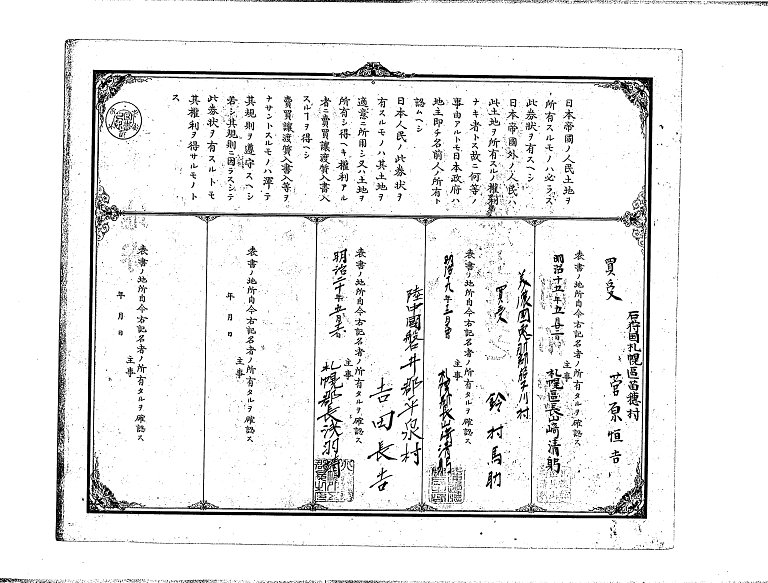 日本帝國ノ人民土地ヲ
所有スルモノハ必ラス
此券狀ヲ有スヘシ
日本帝國外ノ人民ハ
此土地ヲ所有スルノ權利
ナキ者トス故ニ何等ノ
事由アルトモ日本政府ハ
地主即チ名前人ノ所有ト
認ムヘシ
日本人民ノ此券狀ヲ
有スルモノハ其土地ヲ
適意ニ所用シ又ハ土地ヲ
所有シ得ヘキ權利アル
者ニ賣買讓渡質入書入
スルヿヲ得ヘシ
賣買讓渡質入書入等ヲ
ナサントスルモノハ渾テ
其規則ヲ遵守スヘシ
若シ其規則ニ因ラスシテ
此券狀ヲ有スルトモ
其權利ヲ得サルモノト
ス
石狩國札幌區苗穗村
買受 菅原恒吉
表書ノ地所自今右記名者ノ所有タルヲ確認ス
主事
明治十五年五月 札幌區長山崎清躬
川村
買受 鈴村馬助
表書ノ地所自今右記名者ノ所有タルヲ確認ス
主事
明治十九年三月
陸中國磐井郡平泉村
吉田長吉
表書ノ地所自今右記名者ノ所有タルヲ確認ス
主事
明治二十年五月 札幌郡長浅羽靖
表書ノ地所自今右記名者ノ所有タルヲ確認ス
主事
年月日
表書ノ地所自今右記名者ノ所有タルヲ確認ス
主事
年月日